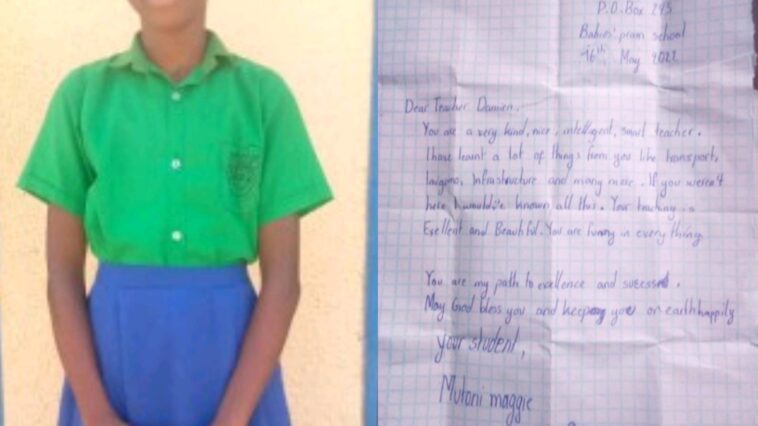 P.O.Box 293
Babies' pram school
16th May 2022
Dear Teacher Damien,
You are a very kind, nice, intelligent, smart teacher.
I have learnt a lot of things from you like transport,
Infrastructure and many more. If you weren't
here I known all this. Your teaching is
Exellent and Beautiful. You are funny in every thing
You are my path to exellence and
May God bless you and you on earth happily
your student,
Mutoni maggie